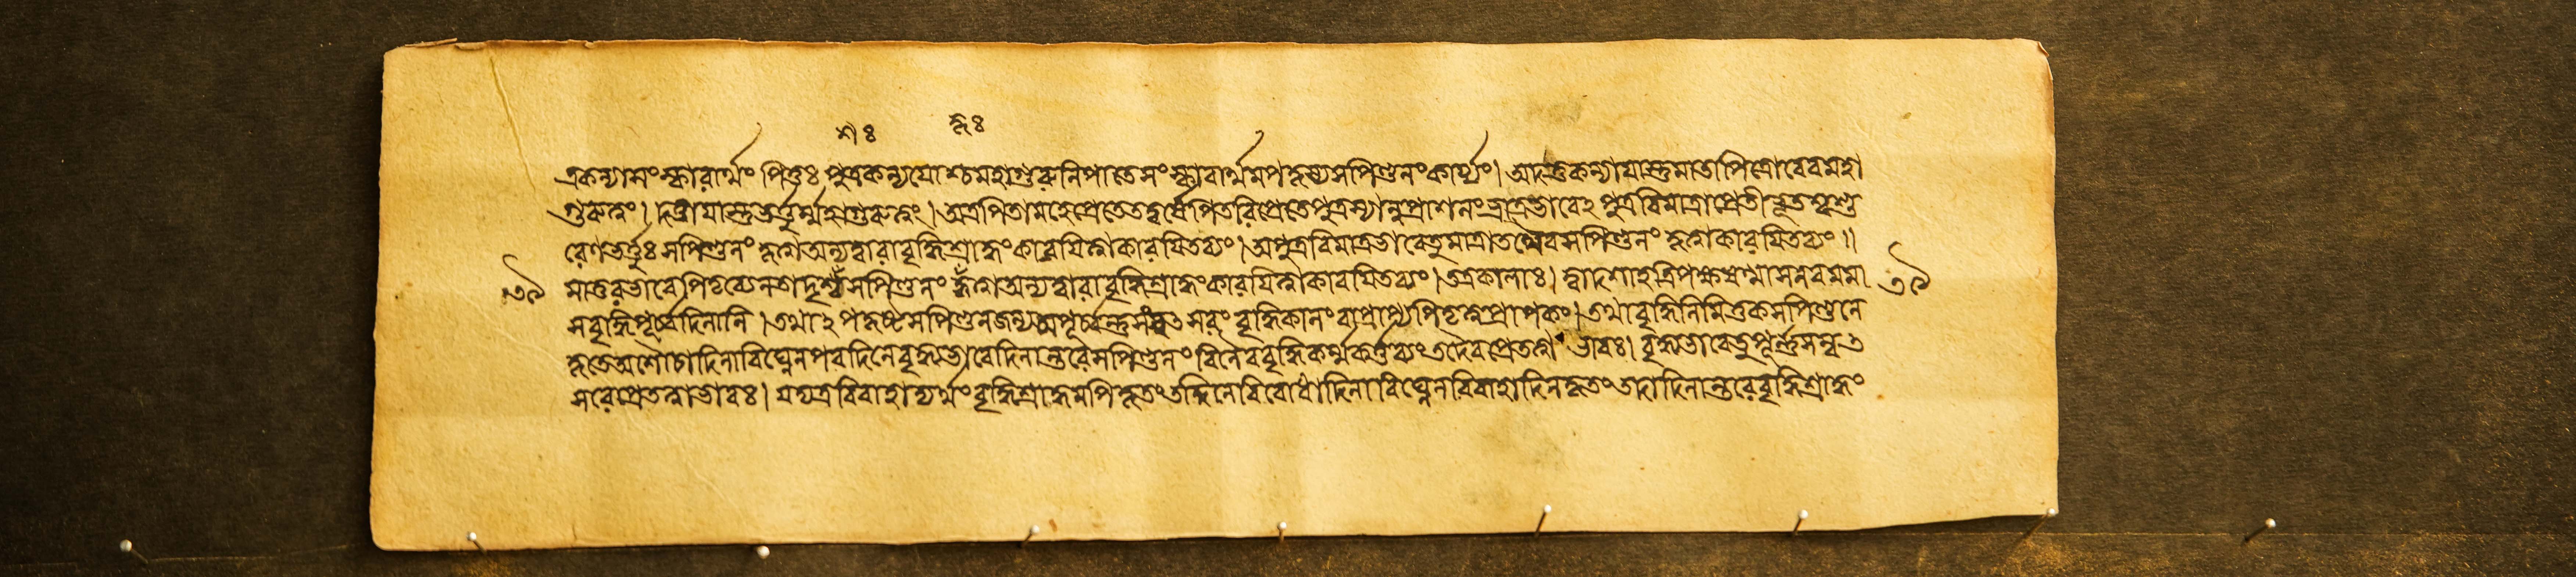 শঃ কৃঃ
একন্যাসংস্কারার্থং পিতুঃ পুত্রকন্যয়োশ্চমহাগুরুনিপাতেসংস্কারার্থমপকৃষ্যসপিণ্ডনংকার্য্যং। অদত্তকন্যায়াস্তুমাতাপিত্রোবেবমহা
গুরুত্বং। দত্তায়াস্তুভর্ত্তুর্ম্মহাগুরুত্বং। অত্রপিতামহেপ্রেতেতদ্বর্ষেপিতরিপ্রেতেপুত্রস্যান্নপ্রাশনং পুত্রবিমাত্রাপ্রেতীভূতশ্বশু
রেণভর্ত্তুঃ সপিণ্ডনং কৃত্বাঅন্যদ্বারাবৃদ্ধিশ্রাদ্ধংকারয়িত্বাকারয়িতব্যং। অপুত্রবিমাত্রভাবেতুমাত্রাতথৈবসপিণ্ডনং কৃত্বাকারয়িতব্যং॥
৩৯ মাতুরভাবেপিতৃব্যেনতাদৃশ সপিণ্ডনং কৃত্বাঅন্যদ্বারাবৃদ্ধিশ্রাদ্ধংকারয়িত্বাকারয়িতব্যং। তত্রকালাঃ। দ্বাদশাহত্রিপক্ষষণ্মাসনবমমা ৩৯
সবৃদ্ধিপূর্ব্বদিনানি। তথাহ পকৃষ্টসপিণ্ডনজন্য বৃদ্ধিকানং পিতৃত্বপ্রাপকং। তথাবৃদ্ধিনিমিত্তকসপিণ্ডনে
কৃতেঅশৌচাদিনাবিঘ্নেনপরদিনেবৃদ্ধ্যভাবেদিনান্তরেসপিণ্ডনং বিনৈববৃদ্ধিকর্ম্মকর্ত্তব্যং তদৈবপ্রেতত্বা ভাবঃ। বৃদ্ধ্যভাবেতুপূর্ণসম্বত
সরেপ্রেতত্বাভাবঃ। যত্রবিবাহাদ্যর্থংবৃদ্ধিশ্রাদ্ধমপিকৃতং তদ্দিনেবিরোধাদিনাবিঘ্নেনবিবাহাদিনকৃতং তদাদিনান্তরেবৃদ্ধিশ্রাদ্ধং